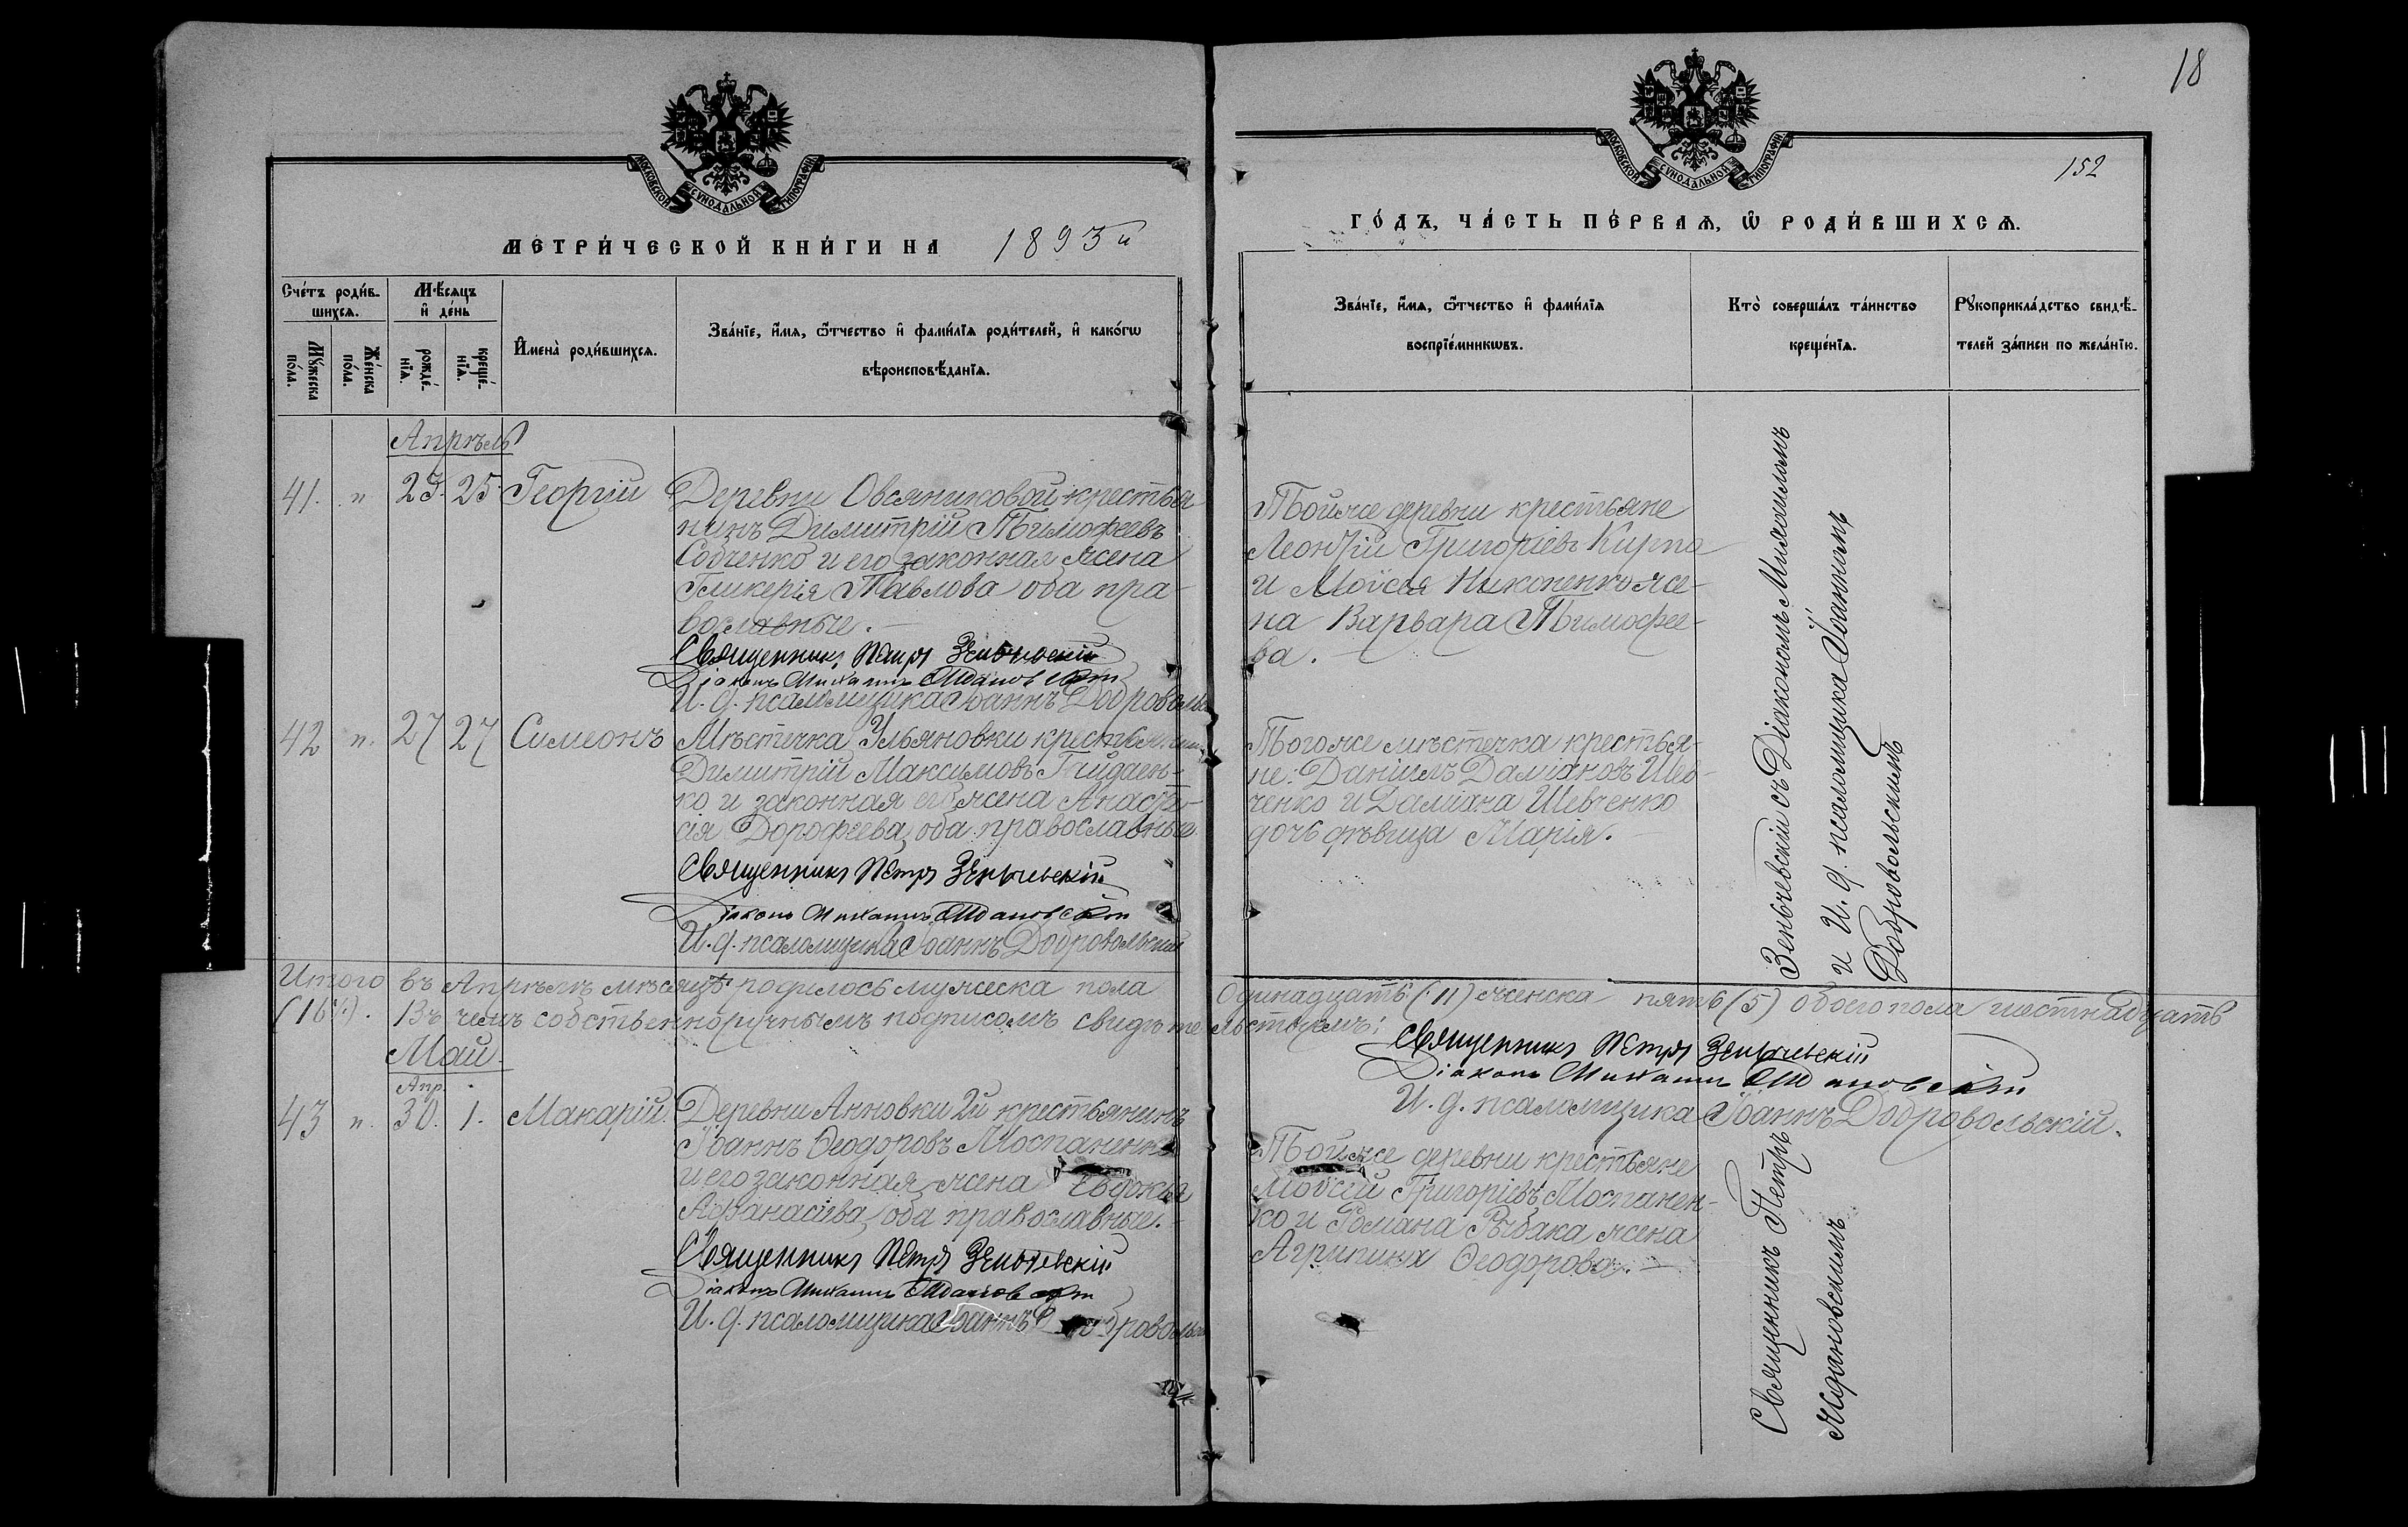 18
МОСКОВСКОЙ СѴНОДАЛЬНОЙ ТИПОГРАФІИ
МОСКОВСКОЙ СѴНОДАЛЬНОЙ ТИПОГРАФІИ
152
МЕТРИ́ЧЕСКОЙ КНИ́ГИ НА 1893й
ГО́ДЪ, ЧА́СТЬ ПЕ́РВАѦ, Ѿ РОДИ́ВШИХСѦ.
Сче́тъ роди́в-
шихсѧ.
Мꙋ́жеска
по́ла.
Же́нска
по́ла.
Мѣ́сѧцъ
и҆ де́нь
рожде́-
нїѧ.
креще́-
нїѧ.
И҆мена̀ роди́вшихсѧ.
Зва́нїе, и҆́мѧ, ѻ҆́тчество и҆ фами́лїѧ роди́телей, и҆ како́гѡ
вѣроисповѣ́данїѧ.
Зва́нїе, и҆́мѧ, ѻ҆́тчество и҆ фами́лїѧ
воспрїе́мникѡвъ.
Кто̀ соверша́лъ та́инство
креще́нїѧ.
Рꙋкоприкла́дство свидѣ́-
телей за́писи по жела́нїю.
Апрѣль
41. " 23. 25. Георгій
Деревни Овсяниковой крестья
нинъ Димитрій Тимофеевъ
Собченко и его законная жена
Гликерія Павлова оба пра-
вославные.
Священникъ Петръ Зеньчевскій
Діаконъ Михаилъ Ждановскій
И. д. псаломщика Іоаннъ Добровольс
Тойже деревни крестьяне
Леонтій Григоріевъ Кирпа
и Моисея Никоненко же-
на Варвара Тимофее-
ва.
42 ". 27 27 Симеонъ
Мѣстечка Ульяновки крестьянинъ
Димитрій Максимовъ Гайдаен-
ко и законная его жена Анаста-
сія Дорофеева, оба православные.
Священникъ Петръ Зеньчевскій
Діаконъ Михаилъ Ждановскій
И. д. псаломщика Іоаннъ Добровольскій
Тогоже мѣстечка крестья-
не: Даніилъ Даміановъ Шев-
ченко и Даміана Шевченко
дочь дѣвица Марія.
Зеньчевскій съ Діакономъ Михаиломъ
и И. д. псаломщика Іоанномъ
Добровольскимъ
Итого въ Апрѣлѣ мѣсяцѣ родилось мужеска пола Одинадцать (11) женска пять (5) обоего пола шестнадцать
(16). Въ чемъ собственноручнымъ подписомъ свидѣтельствуемъ:
Священникъ Петръ Зеньчевскій
Діаконъ Михаилъ Ждановскій
И. д. псаломщика Іоаннъ Добровольскій.
Май
Апр.
43 ". 30. 1. Макарій.
Деревни Анновки 2й крестьянинъ
Іоаннъ Ѳеодоровъ Моспаненко
и его законная жена Евдокія
Афанасіева, оба православные.
Священникъ Петръ Зеньчевскій
Діаконъ Михаилъ Ждановскій
И. д. псаломщика Іоаннъ Добровольс
Тойже деревни крестьяне
Моѵсей Григоріевъ Моспанен-
ко и Романа Рыбака жена
Агрипина Ѳеодорова.
Священникъ Петръ
Ждановскимъ